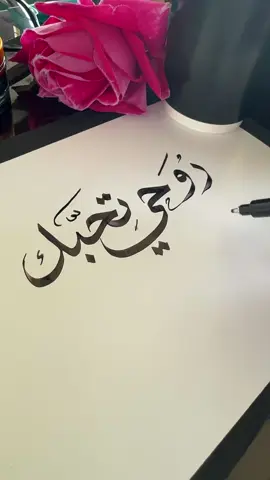 رُوحِي تحبّك